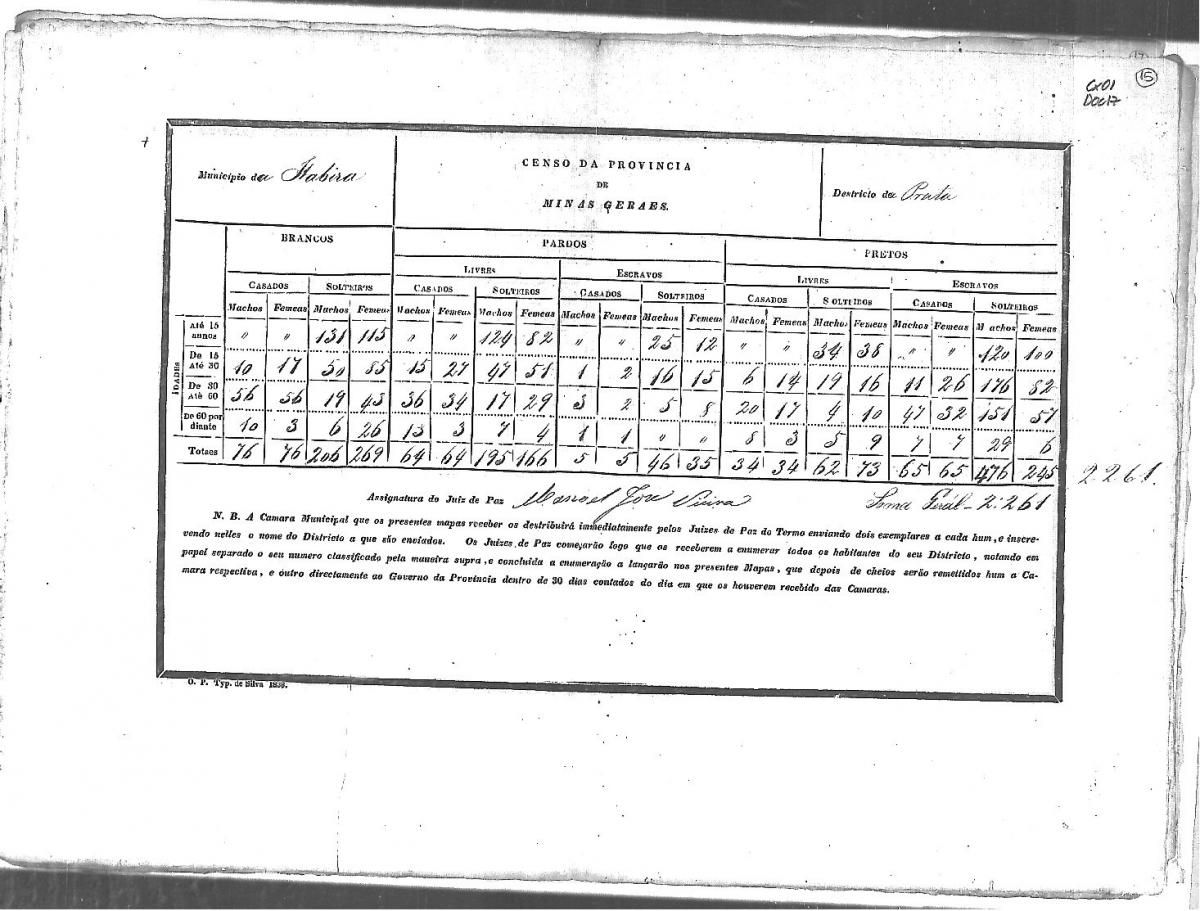 17
15
Cx01
Doc17
Municipio da Itabira
CENSO DA PROVINCIA
DE
MINAS GERAES.
Destricto da Prata
BRANCOS PARDOS PRETOS
LIVRES ESCRAVOS LIVRES ESCRAVOS
CASADOS SOLTEIROS CASADOS SOLTEIROS CASADOS SOLTEIROS CASADOS SOLTEIROS CASADOS SOLTEIROS
Machos Femeas Machos Femeas Machos Femeas Machos Femeas Machos Femeas Machos Femeas Machos Femeas Machos Femeas Machos Femeas Machos Femeas
IDADES
Até 15 annos " " 131 115 " " 124 82 " " 25 12 " " 34 38 " " 120 100
De 15 Até 30 10 17 50 85 15 27 47 51 1 2 16 15 6 14 19 16 11 26 176 82
De 30 Até 60 56 56 19 43 36 34 17 29 3 2 5 8 20 17 4 10 47 32 151 57
De 60 por diante 10 3 6 26 13 3 7 4 1 1 " " 8 3 5 9 7 7 29 6
Totaes 76 76 206 269 64 64 195 166 5 5 46 35 34 34 62 73 65 65 476 245 2261.
Assignatura do Juiz de Paz Manoel Joze Vieira Soma Gerál - 2:261
N. B. A Camara Municipal que os presentes mapas receber os destribuirá immediatamente pelos Juizes de Paz do Termo enviando dois exemplares a cada hum, e inscre-
vendo nelles o nome do Districto a que são enviados. Os Juizes de Paz começarão logo que os receberem a enumerar todos os habitantes do seu Districto, notando em
papel separado o seu numero classificado pela maneira supra, e concluida a enumeração a lançarão nos presentes Mapas, que depois de cheios serão remettidos hum a Ca-
mara respectiva, e outro directamente ao Governo da Provincia dentro de 30 dias contados do dia em que os houverem recebido das Camaras.
O. P. Typ. de Silva 1838.